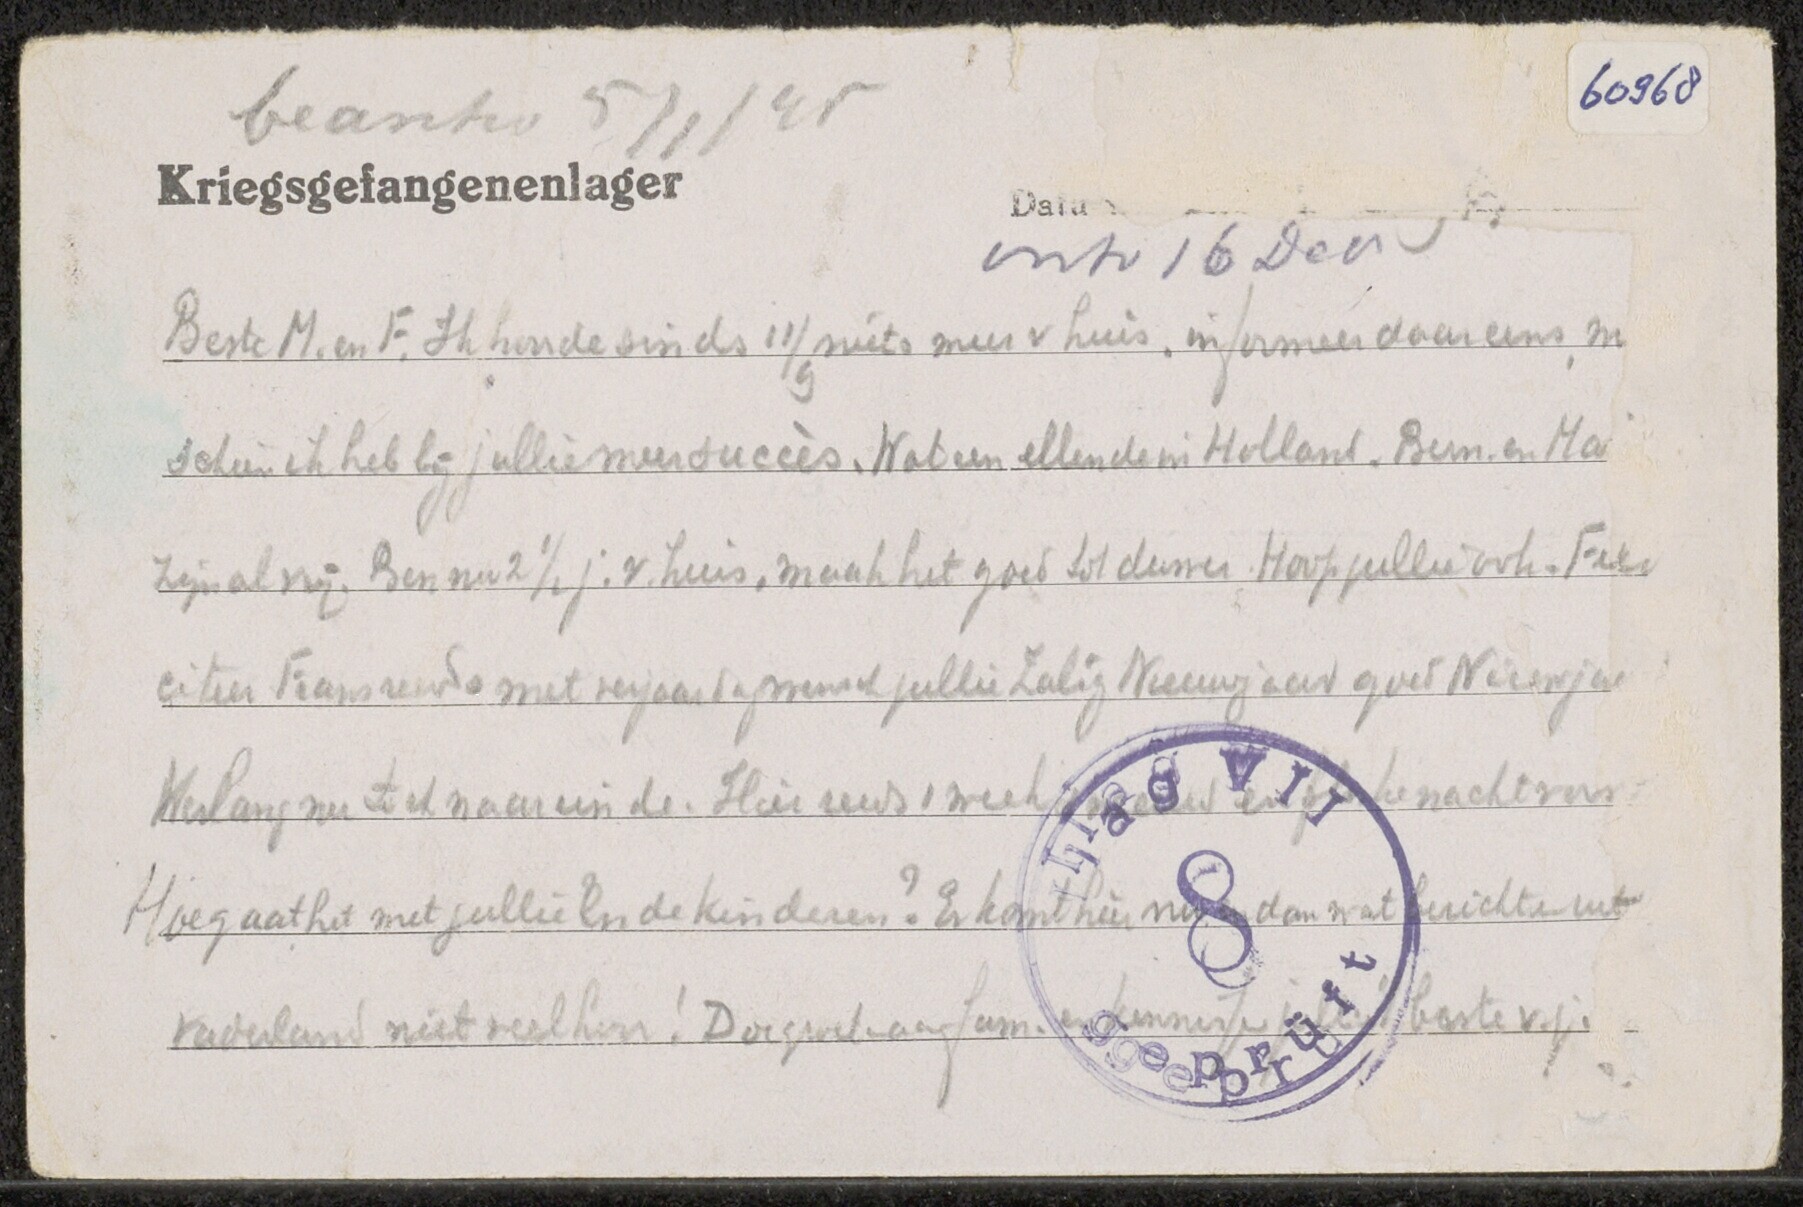 60968
beantw 5/1/45
Kriegsgefangenenlager
Datu
ontv 16 Dec
Beste M. en F. Ik hoorde sinds 11/9 niets meer v huis, informeer daar eens, m
schien ik heb bij jullie meer succès. Wat een ellende in Holland. Bern. en Ma
zijn al vrij. Ben nu 2 1/2 j. v. huis, maak het goed tot dusver. Hoop jullie ook. Feli
citeer Frans reeds met verjaardag wensch jullie Zalig Nieuwjaar goed Nieuwja
Verlang nu toch naar einde. Hier reeds 1 week en nachtvors
Hoe gaat het met jullie en de kinderen? Er komt hier nu en dan wat berichten uit
vaderland niet veel hoor! Doe groet aan fam. en kennissen jullie beste v. j.
Stalag VII A
8
geprüft